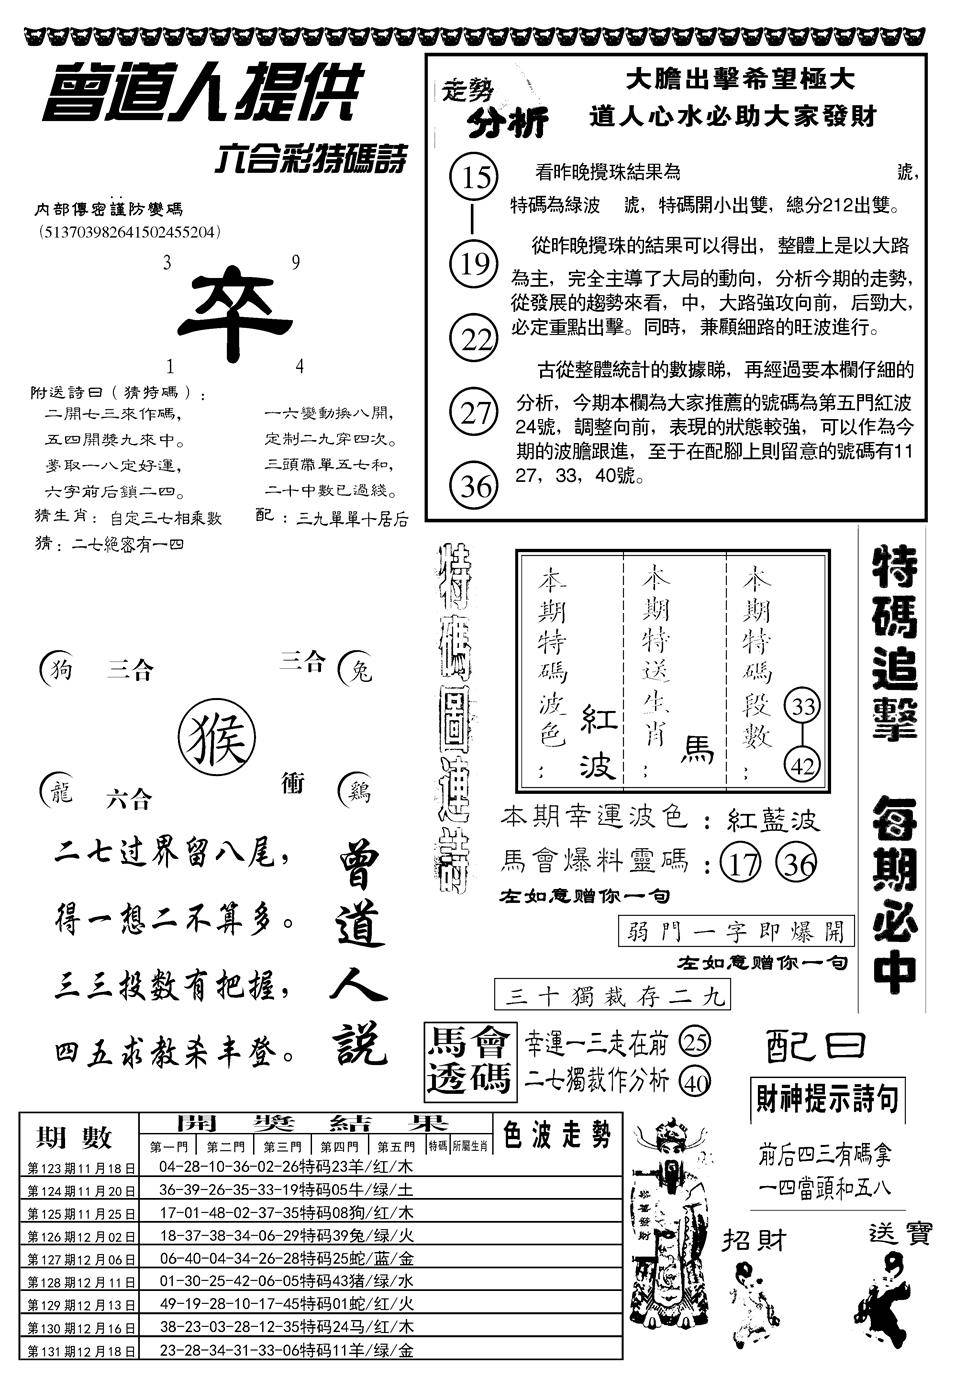 曾道人提供
六合彩特碼詩
内部傳密謹防變碼
（513703982641502455204）
3 9
卒
1 4
附送詩曰（猜特碼）：
二開七三來作碼， 一六變動換八開，
五四開獎九來中。 定制二九穿四次。
夢取一八定好運， 三頭帶單五七和，
六字前后鎖二四。 二十中數已過綫。
猜生肖：自定三七相乘數 配：三九單單十居后
猜：二七絕密有一四
走勢
分析
大膽出擊希望極大
道人心水必助大家發財
15
19
22
27
36
看昨晚攪珠結果為 號，
特碼為綠波 號，特碼開小出雙，總分212出雙。
從昨晚攪珠的結果可以得出，整體上是以大路
為主，完全主導了大局的動向，分析今期的走勢，
從發展的趨勢來看，中，大路強攻向前，后勁大，
必定重點出擊。同時，兼顧細路的旺波進行。
古從整體統計的數據睇，再經過要本欄仔細的
分析，今期本欄為大家推薦的號碼為第五門紅波
24號，調整向前，表現的狀態較強，可以作為今
期的波膽跟進，至于在配腳上則留意的號碼有11
27，33，40號。
狗 三合 三合 兔
猴
龍 六合 衝 鷄
二七过界留八尾，
得一想二不算多。
三三投数有把握，
四五求教杀丰登。
曾道人説
特碼圖連詩
本期特碼波色：
紅波
本期特送生肖：
馬
本期特碼段數：
33
42
本期幸運波色：紅藍波
馬會爆料靈碼：17 36
左如意赠你一句
弱門一字即爆開
左如意赠你一句
三十獨裁存二九
特碼追擊 每期必中
馬會透碼
幸運一三走在前 25
二七獨裁作分析 40
配曰
財神提示詩句
前后四三有碼拿
一四當頭和五八
恭喜發財
招財
送寶
期數 開獎結果 色波走勢
第一門 第二門 第三門 第四門 第五門 特碼 所屬生肖
第123期11月18日 04-28-10-36-02-26特码23羊/红/木
第124期11月20日 36-39-26-35-33-19特码05牛/绿/土
第125期11月25日 17-01-48-02-37-35特码08狗/红/木
第126期12月02日 18-37-38-34-06-29特码39兔/绿/火
第127期12月06日 06-40-04-34-26-28特码25蛇/蓝/金
第128期12月11日 01-30-25-42-06-05特码43猪/绿/水
第129期12月13日 49-19-28-10-17-45特码01蛇/红/火
第130期12月16日 38-23-03-28-12-35特码24马/红/木
第131期12月18日 23-28-34-31-33-06特码11羊/绿/金